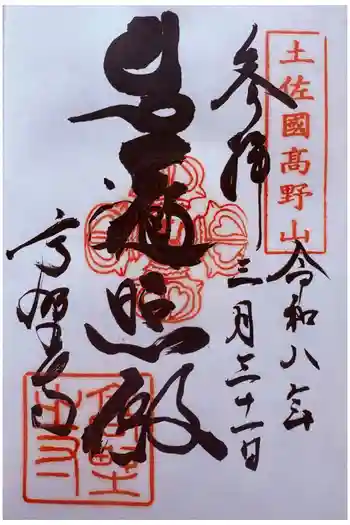 土佐國高野山
参拝
令和八年
三月三十一日
遍照殿
高野寺